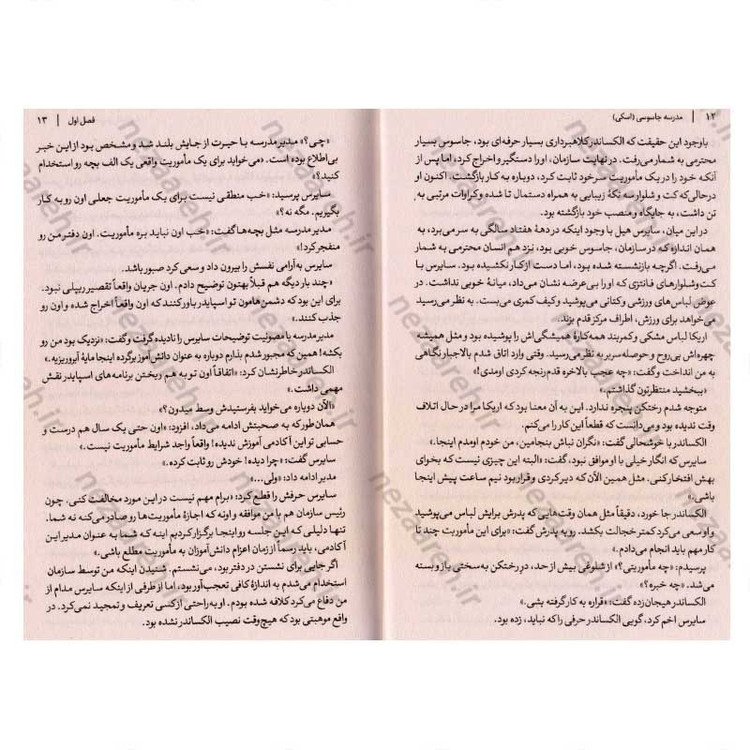 ۱۲ | مدرسه جاسوسی (اسکی)
باوجود این حقیقت که الکساندر کلاهبرداری بسیار حرفه‌ای بود، جاسوس بسیار
محترمی به شمار می‌رفت. در نهایت سازمان، او را دستگیر و اخراج کرد، اما پس از
آنکه خود را در یک مأموریت سرخود ثابت کرد، دوباره به کار بازگشت. اکنون او
درحالی‌که کت و شلوار سه تکهٔ زیبایی به همراه دستمال تا شده و کراوات مرتبی به
تن داشت، به جایگاه و منصب خود بازگشته بود.
در این میان، سایرس هیل با وجود اینکه در دههٔ هفتاد سالگی به سر می‌برد، به
همان اندازه که در سازمان، جاسوس خوبی بود، نزد هم انسان محترمی به شمار
می‌رفت. اگرچه بازنشسته شده بود، اما دست از کار نکشیده بود. سایرس با
کت‌وشلوارهای فانتزی که او را بی‌عرضه نشان می‌داد، میانهٔ خوبی نداشت. در
عوض لباس‌های ورزشی و کتانی می‌پوشید و کیف کمری می‌بست. به نظر می‌رسید
می‌خواهد برای ورزش، اطراف مرکز قدم بزند.
اریکا لباس مشکی و کمربند همه‌کارهٔ همیشگی‌اش را پوشیده بود و مثل همیشه
چهره‌اش بی‌روح و حوصله سربر به نظر می‌رسید. وقتی وارد اتاق شدم بالاجبار نگاهی
به من انداخت و گفت: «چه عجب بالاخره قدم رنجه کردی اومدی!»
«ببخشید منتظرتون گذاشتم.»
متوجه شدم رختکن پنجره ندارد. این به آن معنا بود که اریکا مرا در حال اتلاف
وقت ندیده بود و می‌دانست که قطعاً این کار را می‌کنم.
الکساندر با خوشحالی گفت: «نگران نباش بنجامین، من خودم اومدم اینجا.»
سایرس که انگار خیلی با او موافق نبود، گفت: «البته این چیزی نیست که بخوای
بهش افتخار کنی. مثل همین الآن که دیر کردی و قرار بود نیم ساعت پیش اینجا
باشی.»
الکساندر جا خورد، دقیقاً مثل همان وقت‌هایی که پدرش برایش لباس می‌پوشید
و او سعی می‌کرد کمتر خجالت بکشد. رو به پدرش گفت: «برای این مأموریت چند تا
کار مهم باید انجام می‌دادم.»
پرسیدم: «چه مأموریتی؟» از شلوغی بیش از حد، در رختکن به سختی باز و بسته
می‌شد. «چه خبره؟»
الکساندر هیجان‌زده گفت: «قراره به کار گرفته بشی.»
سایرس اخم کرد، گویی الکساندر حرفی را که نباید، زده بود.
فصل اول | ۱۳
«چی؟» مدیر مدرسه با حیرت از جایش بلند شد و مشخص بود از این خبر
بی‌اطلاع بوده است. «می‌خواید برای یک مأموریت واقعی یک الف بچه رو استخدام
کنید؟»
سایرس پرسید: «خب منطقی نیست برای یک مأموریت جعلی اون رو به کار
بگیریم. مگه نه؟»
مدیر مدرسه مثل بچه‌ها گفت: «خب اون نباید بره مأموریت. اون دفتر من رو
منفجر کرد!»
سایرس به‌آرامی نفسش را بیرون داد و سعی کرد صبور باشد.
«چند بار دیگه هم قبلاً بهتون توضیح دادم. اون جریان واقعاً تقصیر ریپلی نبود.
برای این بود که دشمن‌هامون تو اسپایدر باور کنند که اون واقعاً اخراج شده و اون رو
جذب کنند.»
مدیر مدرسه با مصونیت توضیحات سایرس را نادیده گرفت و گفت: «نزدیک بود من رو
بکشه! همین که مجبور شدم بذارم دوباره به عنوان دانش‌آموز برگرده اینجا مایهٔ آبروریزیه.»
الکساندر خاطرنشان کرد: «اتفاقاً اون تو به هم ریختن برنامه‌های اسپایدر نقش
مهمی داشت.»
«الآن دوباره می‌خواید بفرستیدش وسط میدون؟»
همان‌طور که به صحبتش ادامه می‌داد، افزود: «اون حتی یک سال هم درست و
حسابی تو این آکادمی آموزش ندیده! واقعاً واجد شرایط مأموریت نیست.»
سایرس گفت: «چرا دیده! خودش رو ثابت کرده.»
مدیر ادامه داد: «ولی...»
سایرس حرفش را قطع کرد: «برام مهم نیست در این مورد مخالفت کنی. چون
رئیس سازمان هم با من موافقه و اونه که اجازهٔ مأموریت‌ها رو صادر می‌کنه نه شما.
تنها دلیلی که این جلسه رو اینجا برگزار کردیم اینه که شما به عنوان مدیر این
آکادمی، باید رسماً از زمان اعزام دانش‌آموزان به مأموریت مطلع باشی.»
اگر جایی برای نشستن در دفتر بود، می‌نشستم. شنیدن اینکه من توسط سازمان
استخدام می‌شدم به اندازهٔ کافی تعجب‌آور بود، اما از طرفی از اینکه سایرس مدام از
من دفاع می‌کرد کلافه شده بودم. او به راحتی از کسی تعریف و تمجید نمی‌کرد. در
واقع موهبتی بود که هیچ‌وقت نصیب الکساندر نشده بود.
nezareh.ir